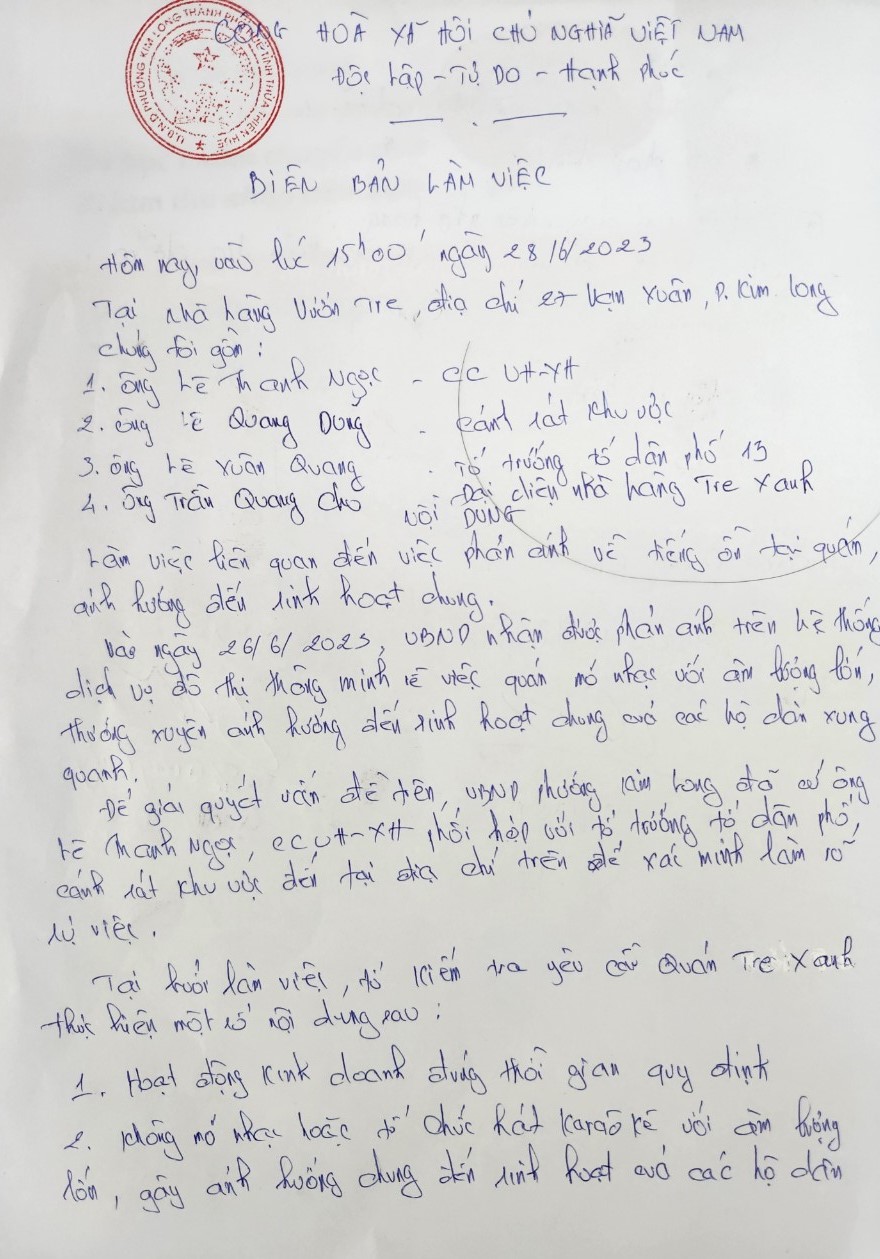 CỘNG HOÀ XÃ HỘI CHỦ NGHĨA VIỆT NAM
Độc lập - Tự Do - Hạnh phúc
BIÊN BẢN LÀM VIỆC
Hôm nay, vào lúc 15h00' ngày 28/6/2023
Tại nhà hàng Vườn Tre, địa chỉ 27 Vạn Xuân, P. Kim Long
chúng tôi gồm:
1. ông Lê Thanh Ngọc - CC VH-XH
2. ông Lê Quang Dũng - Cảnh sát khu vực
3. ông Lê Xuân Quang - Tổ trưởng tổ dân phố 13
4. ông Trần Quang Cho Đại diện nhà hàng Tre Xanh
NỘI DUNG
Làm việc liên quan đến việc phản ánh về tiếng ồn tại quán,
ảnh hưởng đến sinh hoạt chung.
Vào ngày 26/6/2023, UBND nhận được phản ánh trên hệ thống
dịch vụ đô thị thông minh về việc quán mở nhạc với âm lượng lớn,
thường xuyên ảnh hưởng đến sinh hoạt chung của các hộ dân xung
quanh.
Để giải quyết vấn đề trên, UBND phường Kim Long đã cử ông
Lê Thanh Ngọc, CC VH-XH phối hợp với tổ trưởng tổ dân phố,
cảnh sát khu vực đến tại địa chỉ trên để xác minh làm rõ
sự việc.
Tại buổi làm việc, tổ kiểm tra yêu cầu Quán Tre Xanh
thực hiện một số nội dung sau:
1. Hoạt động kinh doanh đúng thời gian quy định
2. Không mở nhạc hoặc tổ chức hát Karaôkê với âm lượng
lớn, gây ảnh hưởng chung đến sinh hoạt của các hộ dân